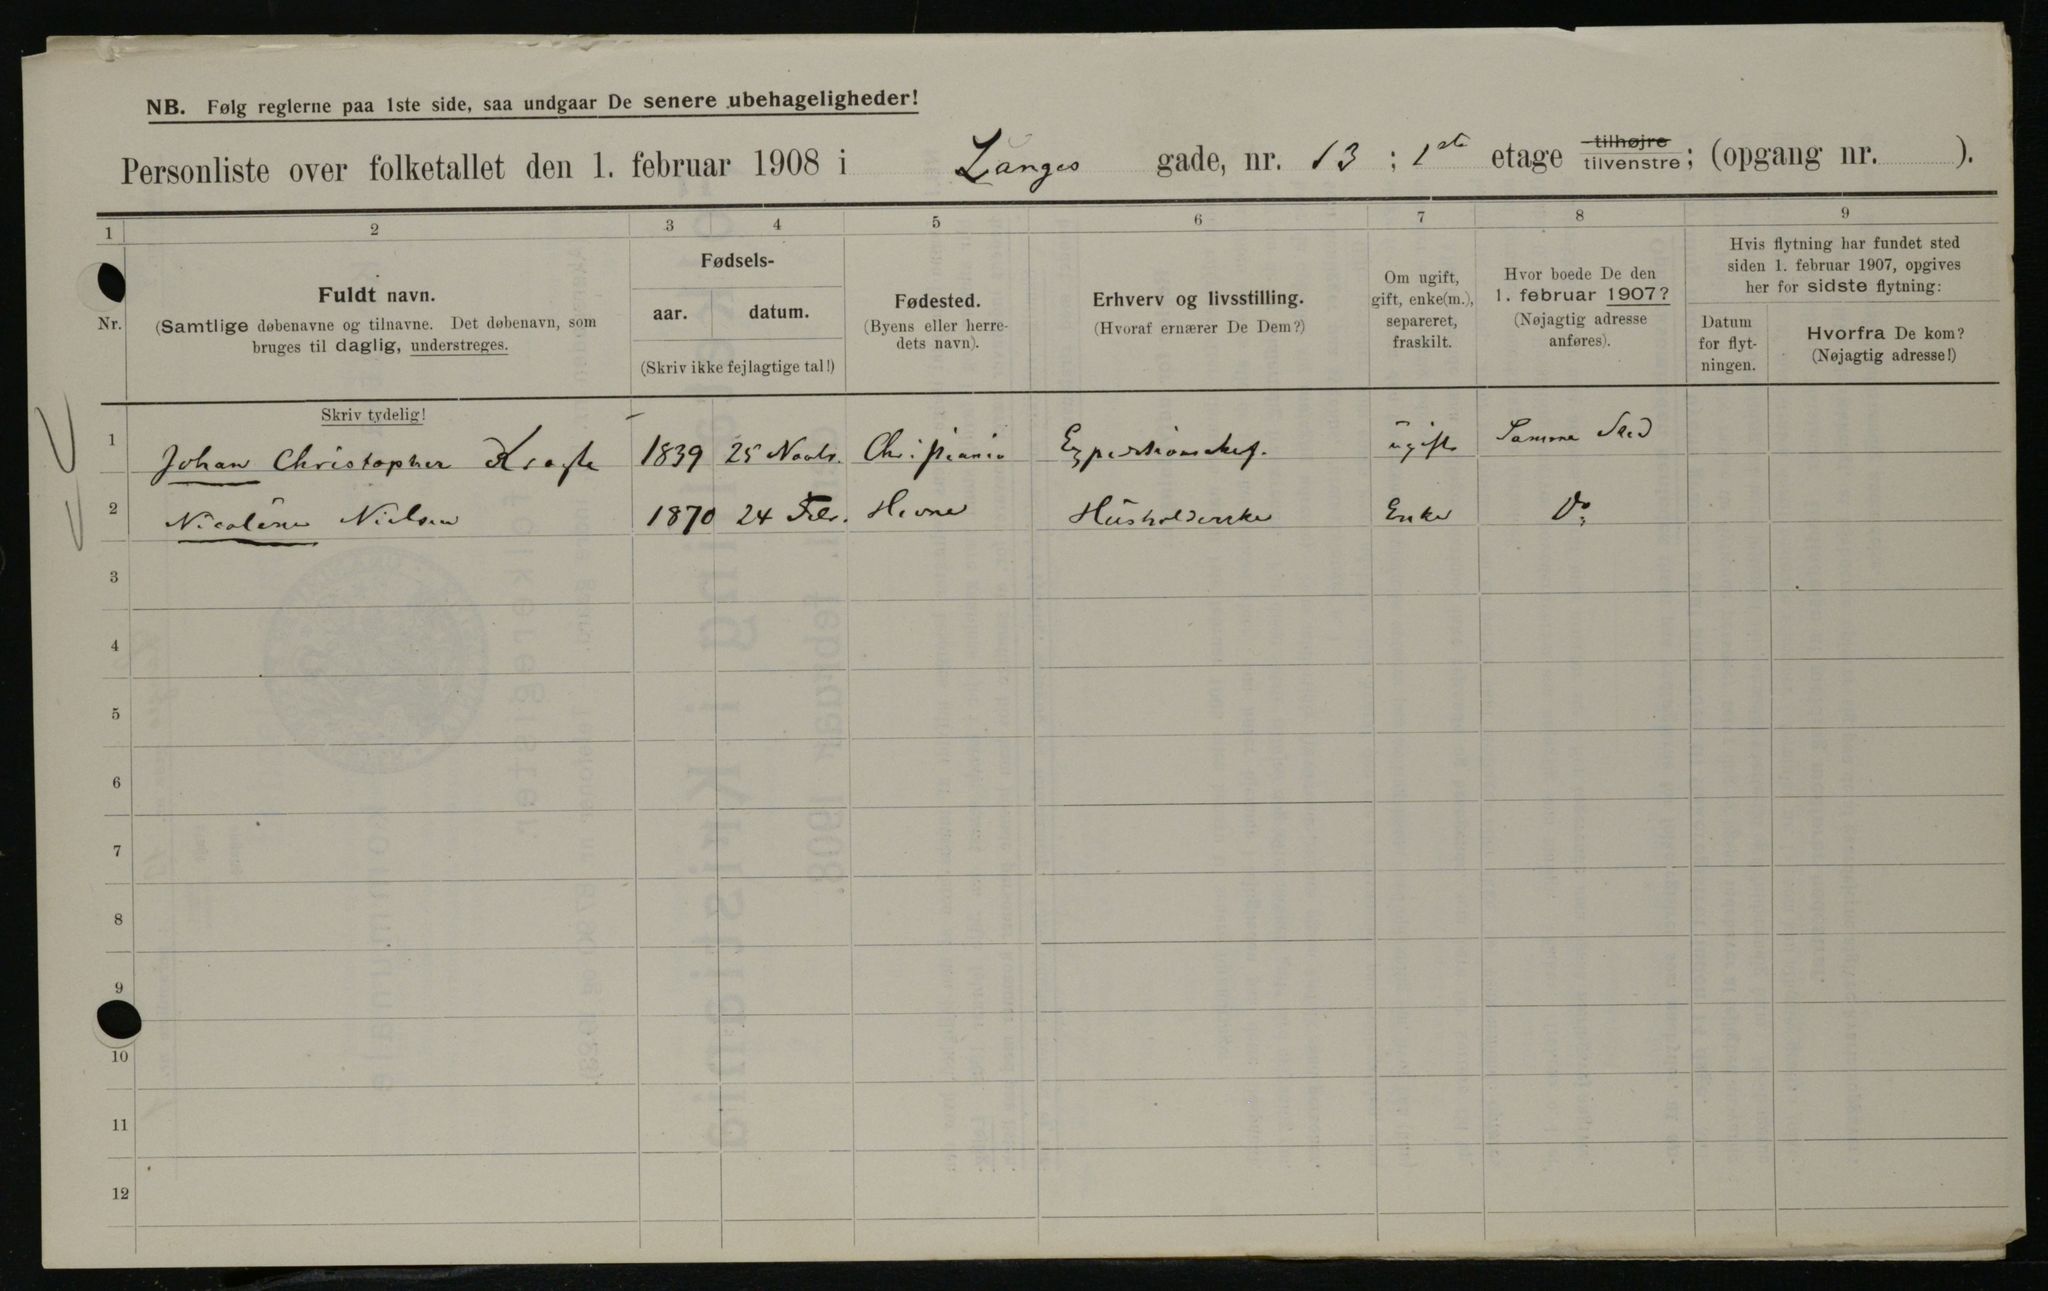 NB. Følg reglerne paa 1ste side, saa undgaar De senere ubehageligheder!
Personliste over folketallet den 1. februar 1908 i Langes gade, nr. 13 ; 1ste etage tilhøjre tilvenstre ; (opgang nr. ).
1 2 3 4 5 6 7 8 9
Nr.
Fuldt navn.
(Samtlige døbenavne og tilnavne. Det døbenavn, som
bruges til daglig, understreges.
Fødsels-
aar. datum.
(Skriv ikke fejlagtige tal!)
Fødested.
(Byens eller herre-
dets navn).
Erhverv og livsstilling.
(Hvoraf ernærer De Dem?)
Om ugift,
gift, enke(m.),
separeret,
fraskilt.
Hvor boede De den
1. februar 1907?
(Nøjagtig adresse
anføres).
Hvis flytning har fundet sted
siden 1. februar 1907, opgives
her for sidste flytning:
Datum
for flyt-
ningen.
Hvorfra De kom?
(Nøjagtig adresse!)
Skriv tydelig!
1 Johan Christopher 1839 25 Novbr. Christiania ugift Samme Sted
2 Nicoline Nielsen 1870 24 Febr. Hevne Husholderske Enke Do
3
4
5
6
7
8
9
10
11
12